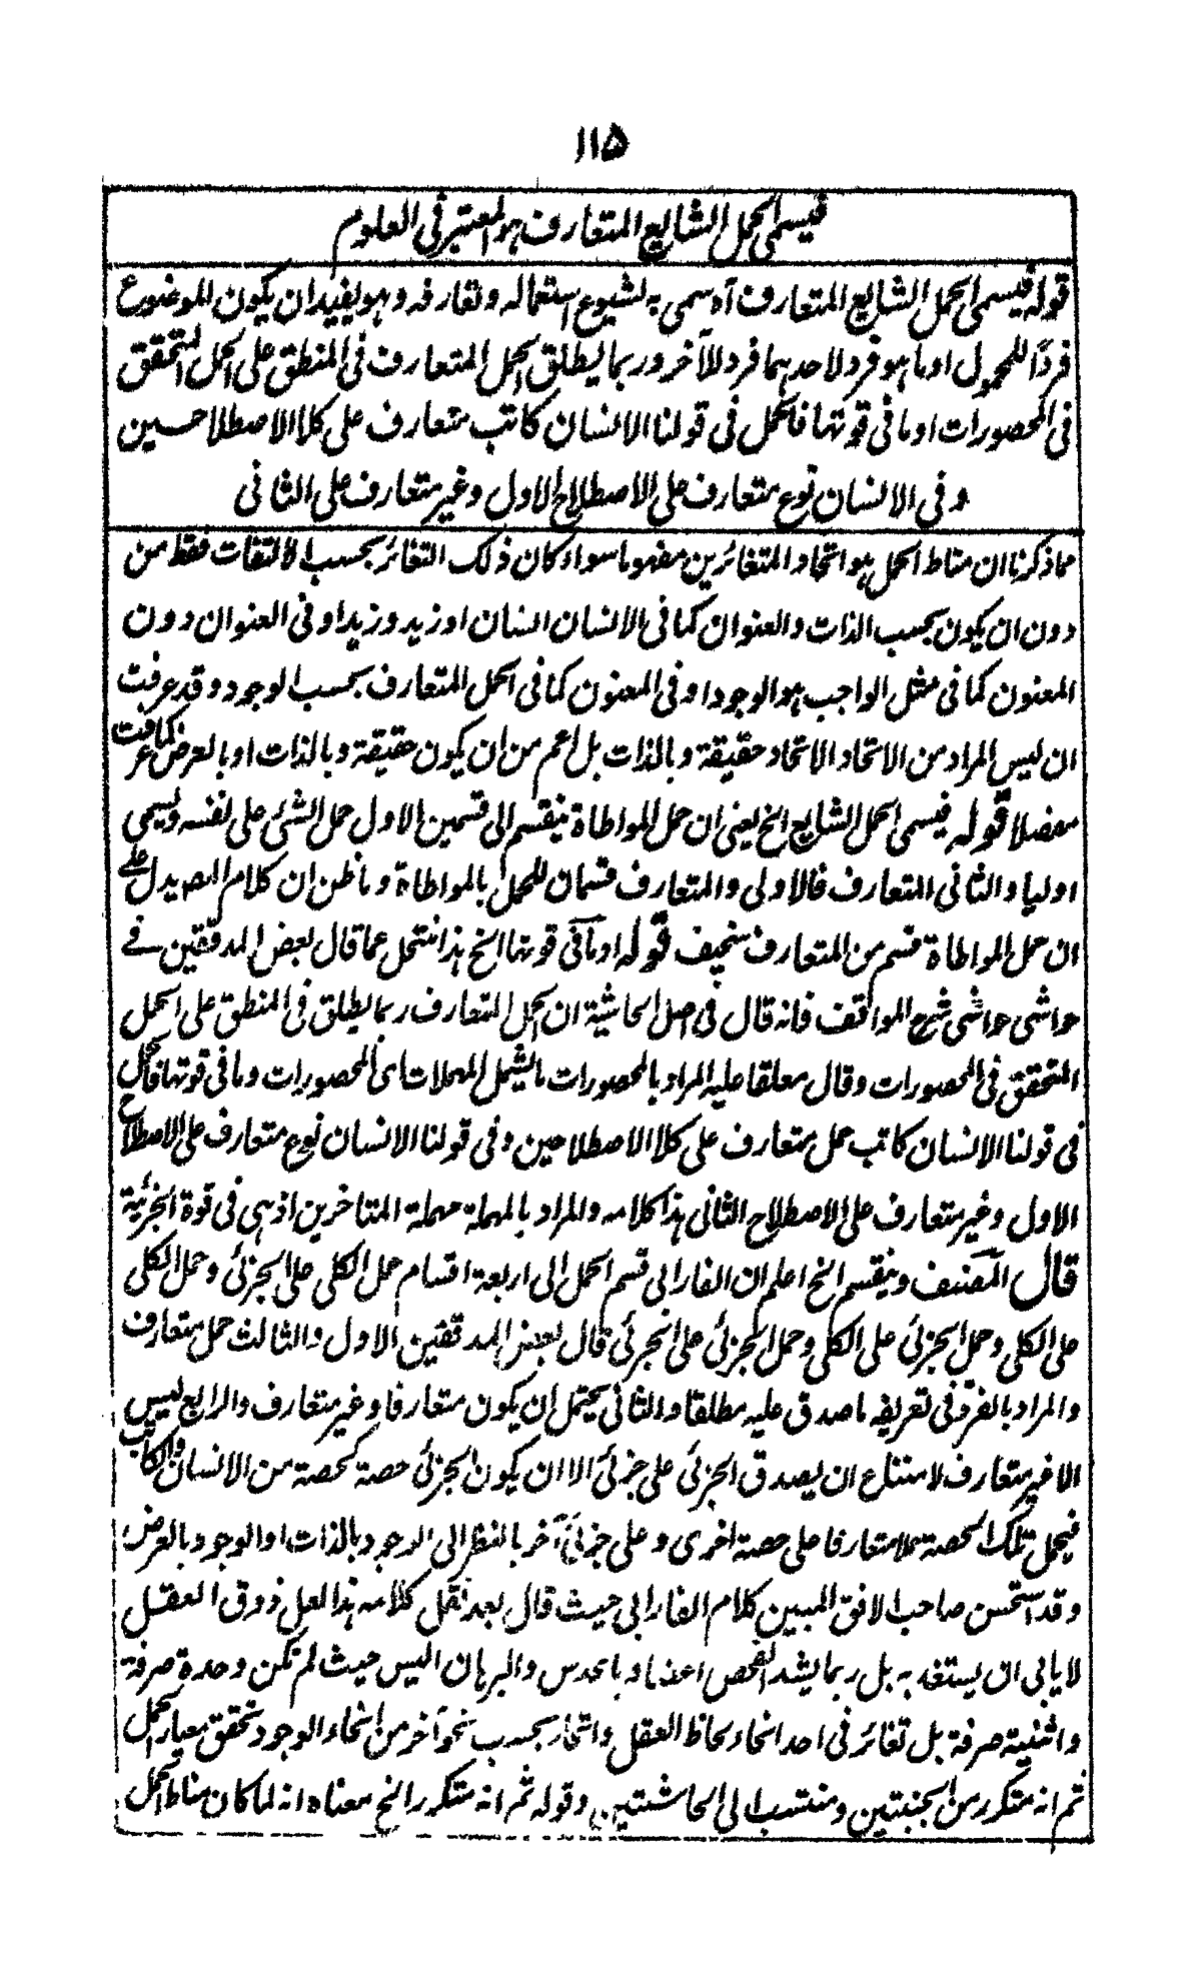 ١١۵
فيسمى الحمل الشايع المتعارف وهو المعتبر فى العلوم
قوله فيسمى الحمل الشايع المتعارف آه سمى به لشيوع استعماله وتعارفه وهو يفيد ان يكون الموضوع
فرداً للمحمول او ما هو فرد لاحدهما فرد للآخر وربما يطلق الحمل المتعارف فى المنطق على الحمل المتحقق
فى المحصورات او ما فى قوتها فالحمل فى قولنا الانسان كاتب متعارف على كلا الاصطلاحين
وفى الانسان نوع متعارف على الاصطلاح الاول وغير متعارف على الثانى
مما ذكرنا ان مناط الحمل هو اتحاد المتغائرين مفهوما سواء كان ذلك التغائر بحسب الالتفات فقط من
دون ان يكون بحسب الذات والعنوان كما فى الانسان انسان او زيد وزيد او فى العنوان دون
المعنون كما فى مثل الواجب هو الوجود او فى المعنون كما فى الحمل المتعارف بحسب الوجود وقد عرفت
ان ليس المراد من الاتحاد الاتحاد حقيقة وبالذات بل اعم من ان يكون حقيقة وبالذات او بالعرض كما عرفت
مفصلا قوله فيسمى الحمل الشايع الخ يعنى ان حمل المواطاة ينقسم الى قسمين الاول حمل الشئ على نفسه ويسمى
اوليا والثانى المتعارف فالاولى والمتعارف قسمان للحمل بالمواطاة وما ظن ان كلام المص يدل على
ان حمل المواطاة قسم من المتعارف سخيف قوله او ما فى قوتها الخ هذا منتحل عما قال بعض المدققين فے
حواشى حواشى شرح المواقف فانه قال فى اصل الحاشية ان الحمل المتعارف ربما يطلق فى المنطق على الحمل
المتحقق فى المحصورات وقال معلقا عليه المراد بالمحصورات ما يشمل المهملات اى المحصورات وما فى قوتها فالحمل
فى قولنا الانسان كاتب حمل متعارف على كلا الاصطلاحين وفى قولنا الانسان نوع متعارف على الاصطلاح
الاول وغير متعارف على الاصطلاح الثانى هذا كلامه والمراد بالمهملة مهملة المتاخرين اذ هى فى قوة الجزئية
قال المصنف وينقسم الخ اعلم ان الفارابى قسم الحمل الى اربعة اقسام حمل الكلى على الجزئى وحمل الكلى
على الكلى وحمل الجزئى على الكلى وحمل الجزئى على الجزئى قال بعض المدققين الاول والثالث حمل متعارف
والمراد بالفرد فى تعريفه ما صدق عليه مطلقا والثانى يحتمل ان يكون متعارفا وغير متعارف والرابع ليس
الا غير متعارف لامتناع ان يصدق الجزئى على جزئى الا ان يكون الجزئى حصة كحصة من الانسان والكاتب
فيحمل تلك الحصة حملا متعارفا على حصة اخرى وعلى جزئى آخر بالنظر الى الوجود بالذات او الوجود بالعرض
وقد استحسن صاحب الافق المبين كلام الفارابى حيث قال بعد نقل كلامه هذا لعل ذوق العقل
لا يابى ان يستغد به بل ربما يشد الفحص اعضاده بالحدس والبرهان اليس حيث لم تكن وحدة صرفة
واثنينية صرفة بل تغائر فى احد انحاء لحاظ العقل واتحاد بحسب نحو آخر من انحاء الوجود تحقق معيار الحمل
ثم انه متكرر من الجنبتين ومنتسب الى الحاشيتين وقوله ثم انه متكرر الخ معناه انه لما كان مناط الحمل